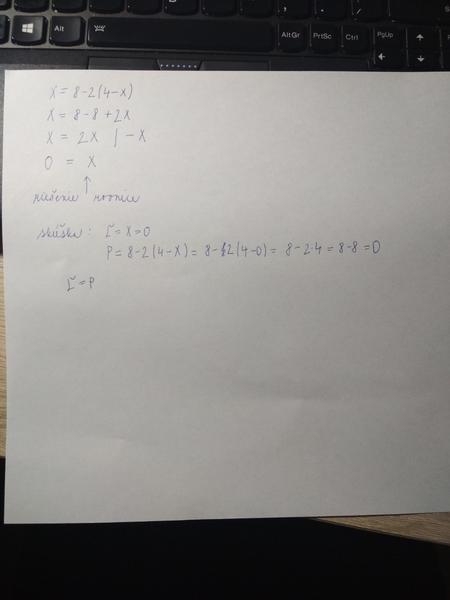 Alt
AltGr
PrtSc
Ctrl
PgUp
x = 8-2(4-x)
x = 8-8+2x
x = 2x | -x
0 = x
↑
riešenie rovnice
skúška: Ľ = x = 0
P = 8-2(4-x) = 8-2(4-0) = 8-2·4 = 8-8 = 0
Ľ = P